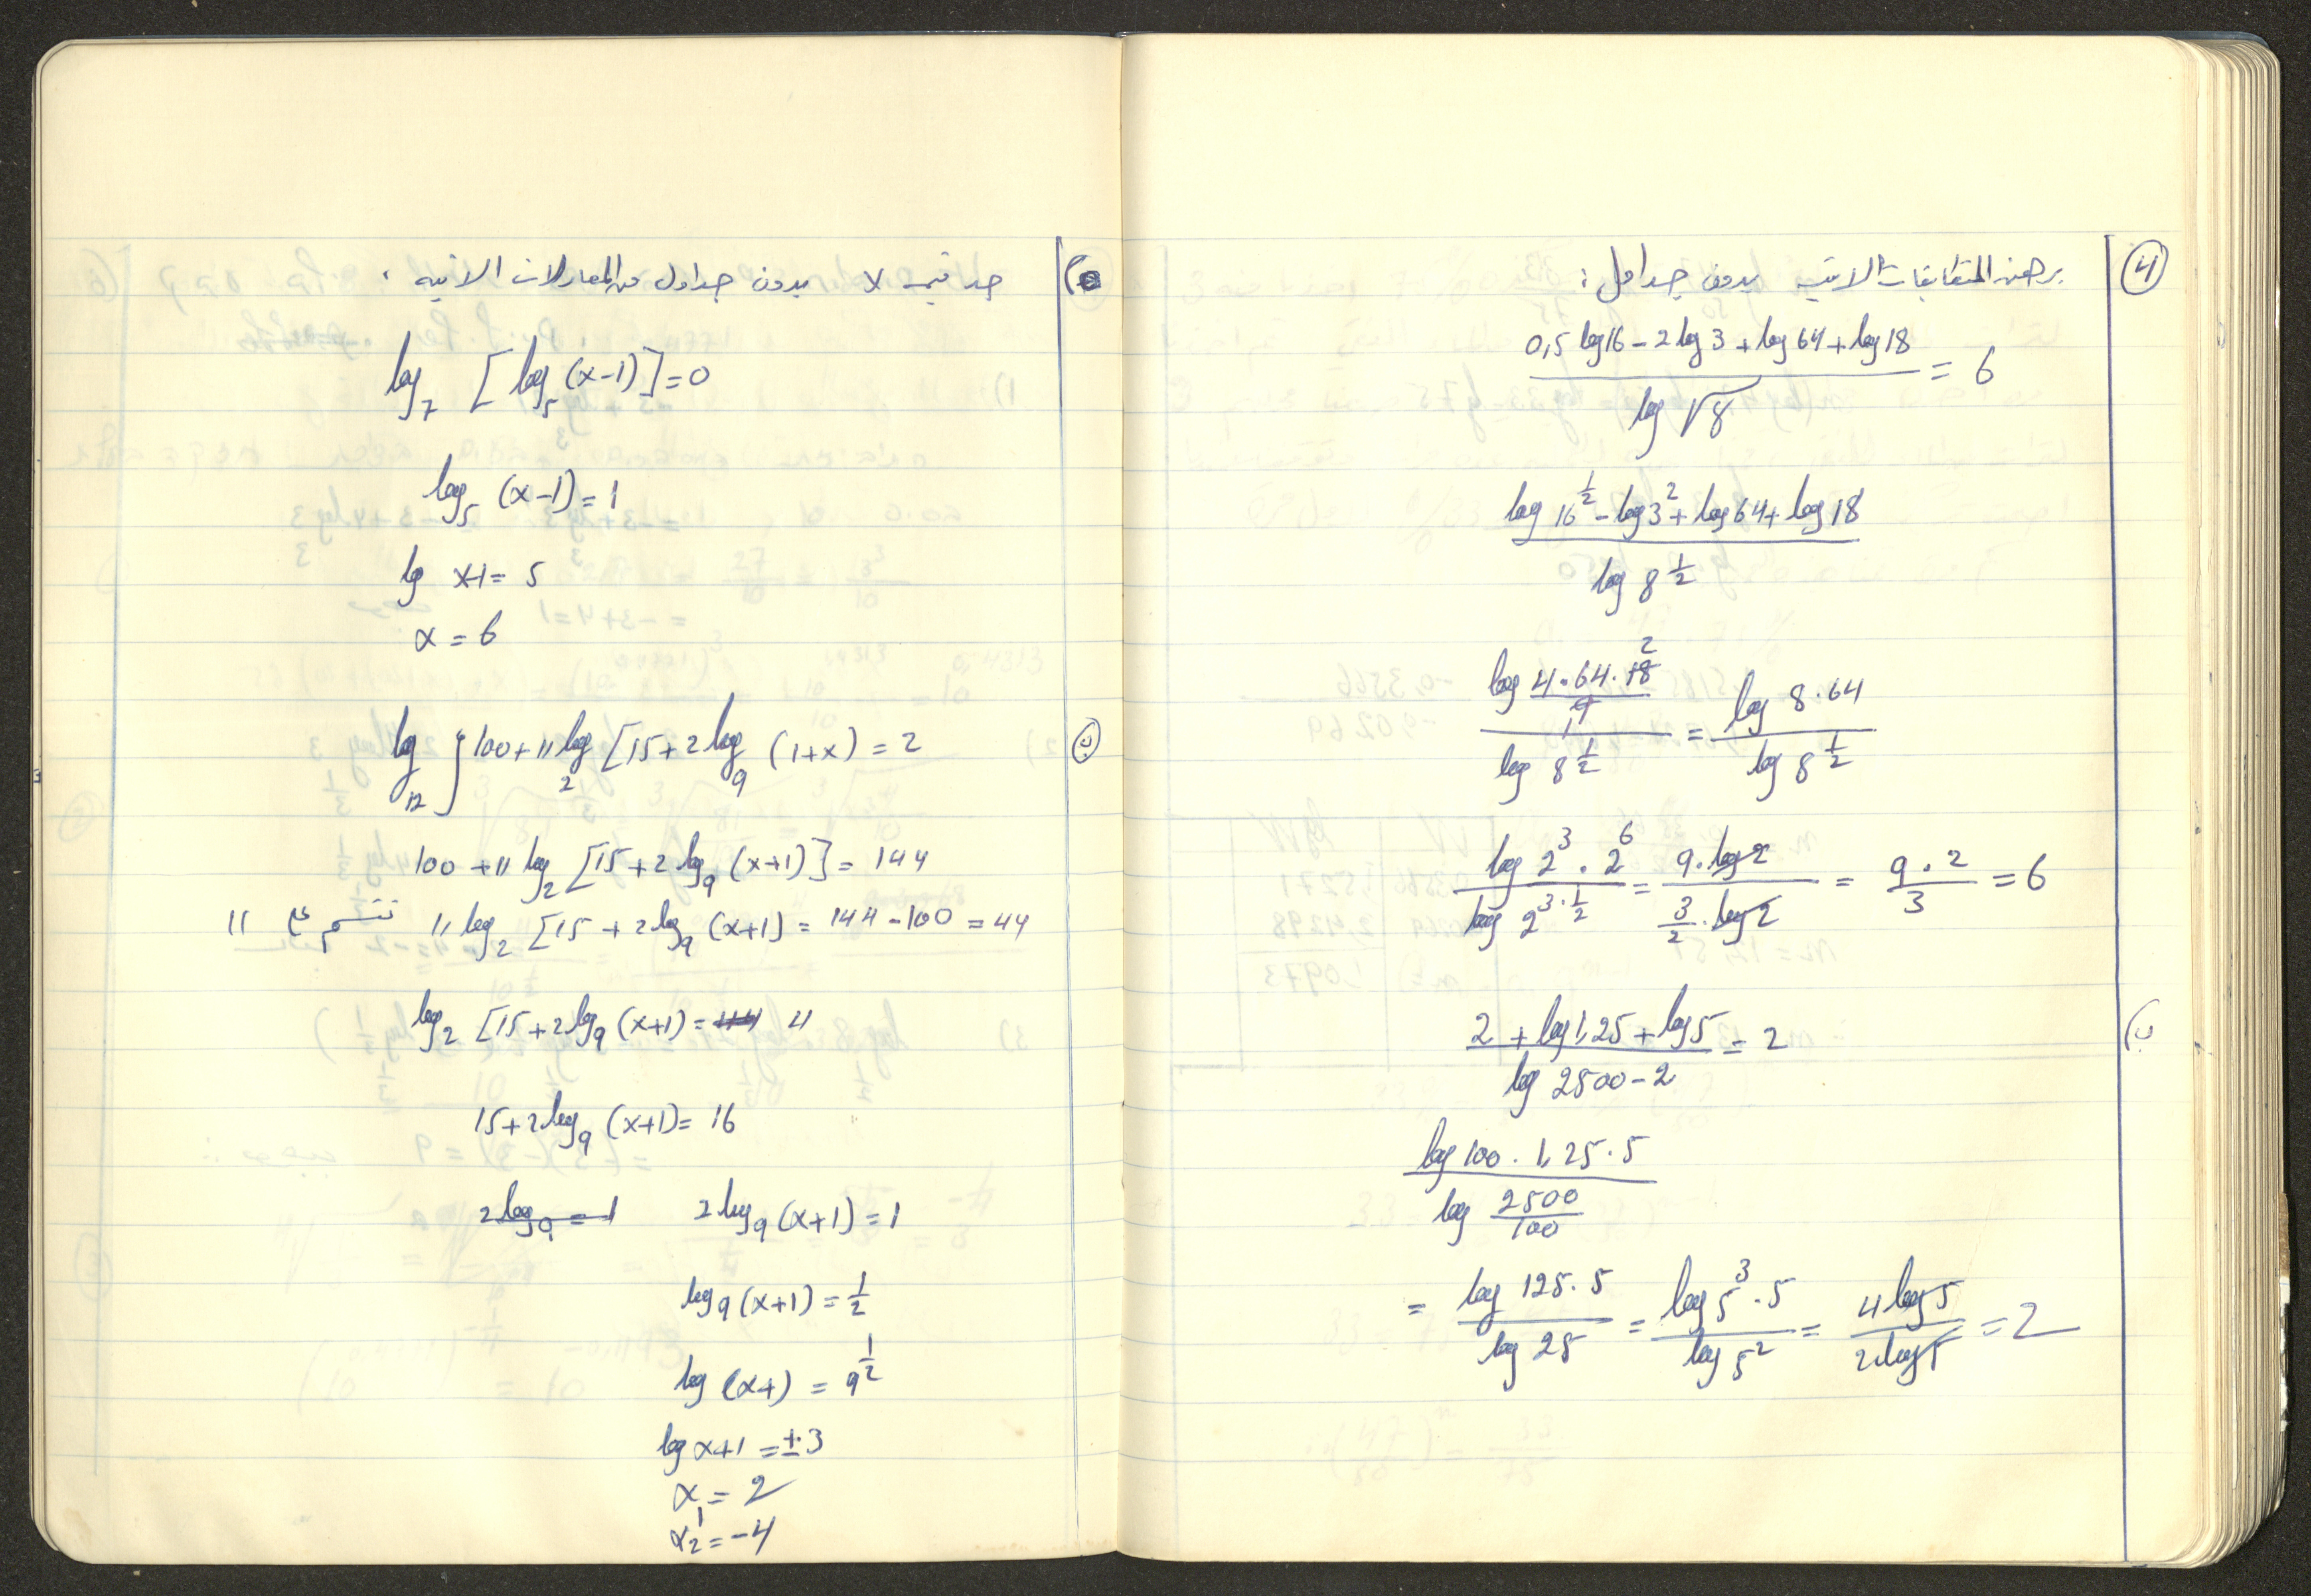 ④ برهن المتطابقات الاتية بدون جداول :
(0,5 log 16 - 2 log 3 + log 64 + log 18) / (log √8) = 6
(log 16^(1/2) - log 3^2 + log 64 + log 18) / (log 8^(1/2))
(log (4·64·18 2)/(9 1)) / (log 8^(1/2)) = (log 8·64) / (log 8^(1/2))
(log 2^3 · 2^6) / (log 2^(3·1/2)) = (9·log 2) / (3/2 · log 2) = (9·2)/3 = 6
ب) (2 + log 1,25 + log 5) / (log 2500 - 2) = 2
(log 100 · 1,25 · 5) / (log 2500/100)
= (log 125·5) / (log 25) = (log 5^3 · 5) / (log 5^2) = (4 log 5) / (2 log 5) = 2
جد قيمة x بدون جداول من المعادلات الاتيه :
log_7 [log_5 (x-1)] = 0
log_5 (x-1) = 1
lg x-1 = 5
x = 6
ب log_12 } 100 + 11 log_2 [15 + 2 log_9 (1+x) = 2
100 + 11 log_2 [15 + 2 log_9 (x+1)] = 144
11 log_2 [15 + 2 log_9 (x+1) = 144 - 100 = 44 نقسم على 11
log_2 [15 + 2 log_9 (x+1) = 44 4
15 + 2 log_9 (x+1) = 16
2 log_9 = 1 2 log_9 (x+1) = 1
log_9 (x+1) = 1/2
log (x+) = 9^(1/2)
log x+1 = ±3
x_1 = 2
x_2 = -4